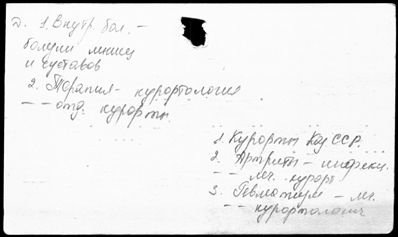 Д. 1. Внутр бол. -
болезни мышц
и суставов
2. Терапия - курортология
- - отд. курорты
1. Курорты Каз ССР.
2. Артриты - инфекц.
- - леч. курорт
3. Ревматизм - леч.
- - курортологич